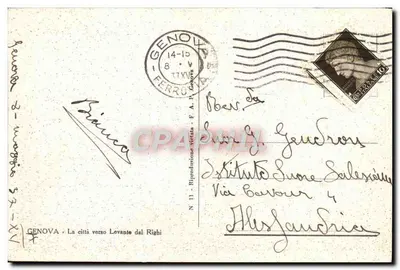 GENOVA
14-15
8 · V
37 XV
FERROVIA
Genova 8-maggio 37-XV
Bianca
Rev.da
Suor G. Gendron
Istituto Suore Salesiane
Via Cavour 4
Alessandria
N. 11 - Riproduzione vietata - F. A. P. Genova
Cartepostale
GENOVA - La città verso Levante dal Righi